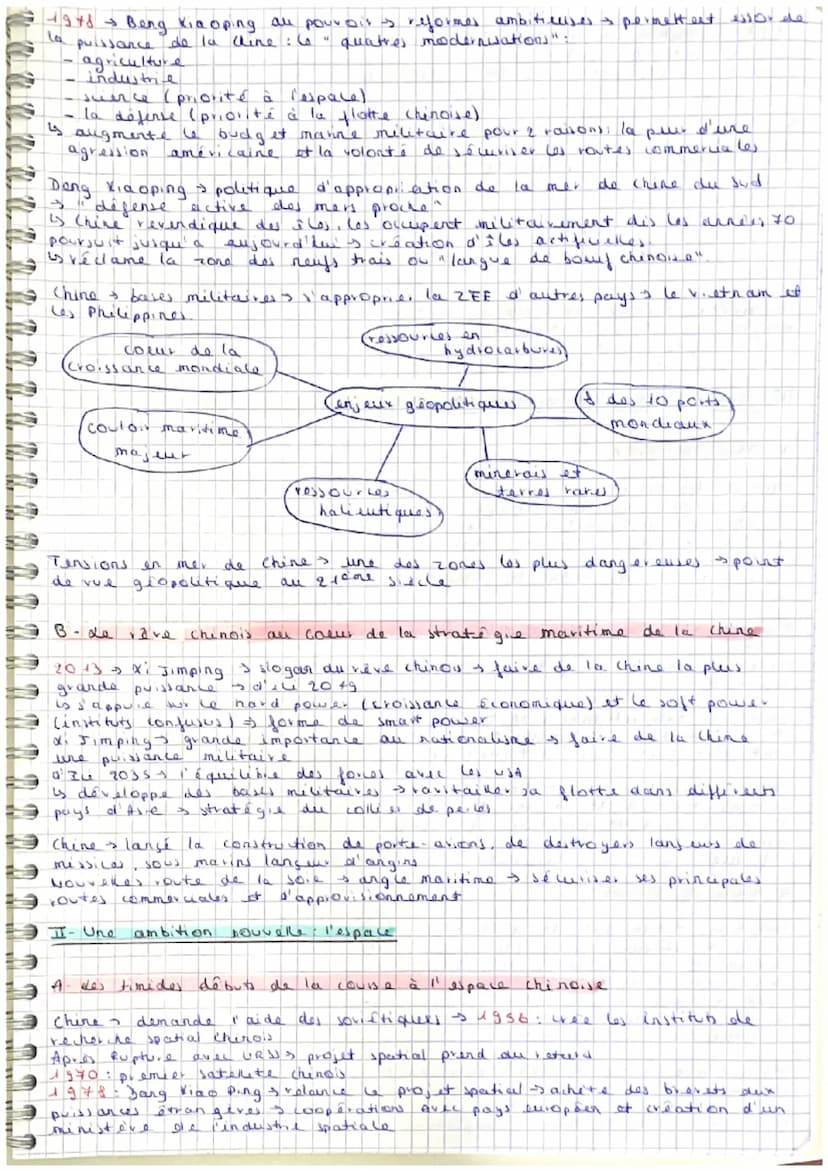 1978 → Deng Xiaoping au pouvoir → réformes ambitieuses → permettent essor de
la puissance de la Chine : le "quatres modernisations":
- agriculture
- industrie
- science (priorité à l'espace)
- la défense (priorité à la flotte chinoise)
↳ augmente le budget marine militaire pour 2 raisons : la peur d'une
agression américaine et la volonté de sécuriser les routes commerciales
Deng Xiaoping → politique d'appropriation de la mer de chine du sud
→ "défense active des mers proche"
↳ Chine revendique des îles, les occupent militairement dès les années 70
poursuit jusqu'à aujourd'hui → création d'îles artificielles.
↳ réclame la zone des neufs traits ou "langue de boeuf chinoise"
Chine → bases militaires → s'approprie la ZEE d'autres pays → le Vietnam et
les Philippines.
coeur de la
croissance mondiale
ressources en
hydrocarbures
enjeux géopolitiques
8 des 10 ports
mondiaux
couloir maritime
majeur
ressources
halieutiques
minerais et
terres rares
Tensions en mer de Chine → une des zones les plus dangereuses → point
de vue géopolitique au 21ème siècle
B - Le rêve chinois au coeur de la stratégie maritime de la Chine
2013 → Xi Jimping → slogan du rêve chinois → faire de la Chine la plus
grande puissance → d'ici 2049
↳ s'appuie sur le hard power (croissance économique) et le soft power
(instituts confusus) ⇒ forme de smart power
Xi Jimping → grande importance au nationalisme → faire de la Chine
une puissance militaire
d'ici 2035 → l'équilibre des forces avec les USA
↳ développe des bases militaires → ravitailler sa flotte dans différents
pays d'Asie → stratégie du collier de perles
Chine → lançé la construction de porte-avions, de destroyers lanceurs de
missiles, sous marins lanceur d'engins
Nouvelles route de la soie → angle maritime → sécuriser ses principales
routes commerciales et d'approvisionnement
II - Une ambition nouvelle : l'espace
A - Les timides débuts de la course à l'espace chinoise
Chine → demande l'aide des soviétiques → 1956 : crée les instituts de
recherche spatial chinois
Après rupture avec URSS → projet spatial prend du retard
1970 : premier satellite chinois
1978 : Deng Xiao Ping → relance le projet spatial → achète des brevets aux
puissances étrangères → coopérations avec pays européen et création d'un
ministère de l'industrie spatiale